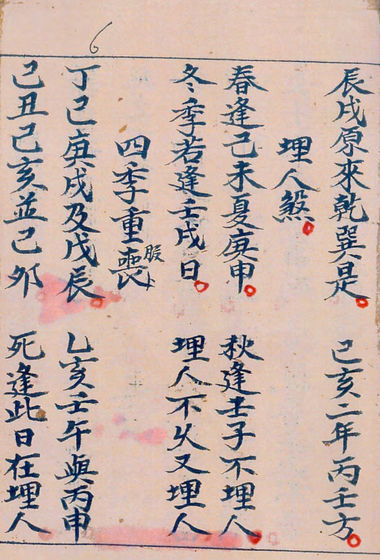 6
辰戌原來乾巽是 巳亥二年丙壬方
埋人煞
春逢己未夏庚申 秋逢壬子不埋人
冬季若逢壬戌日 埋人不久又埋人
四季重喪 服
丁巳庚戌及戊辰 乙亥壬午與丙申
己丑己亥並己卯 死逢此日在埋人